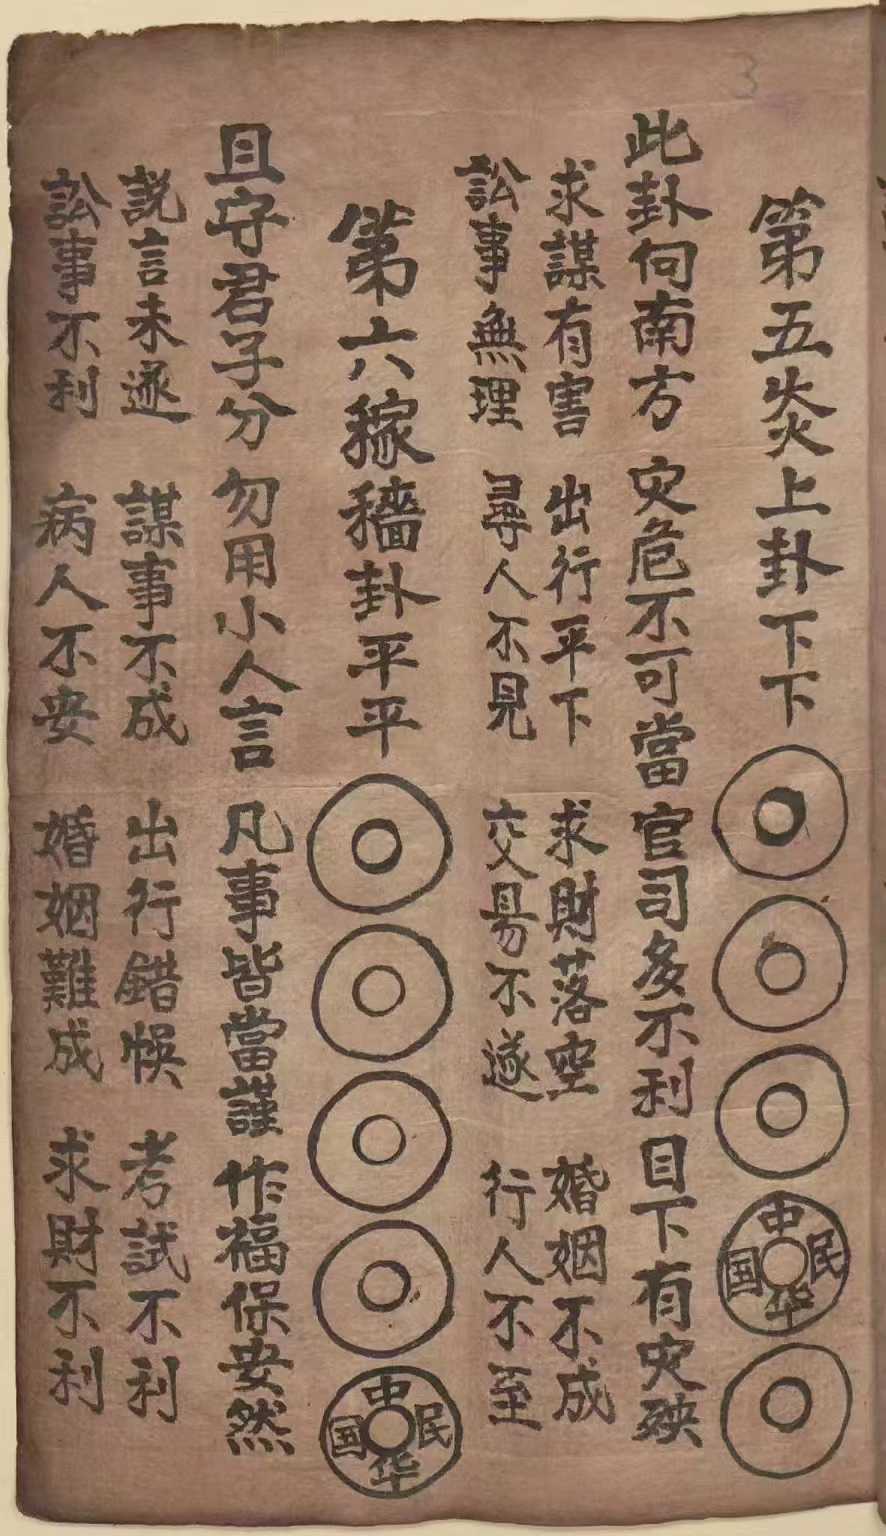 3
第五炎上卦下下
中華民国
此卦向南方 灾危不可當 官司多不利 目下有灾殃
求謀有害 出行平下 求財落空 婚姻不成
訟事無理 尋人不見 交易不遂 行人不至
第六稼穡卦平平
中华民国
且守君子分 勿用小人言 凡事皆當謹 作福保安然
説言未遂 謀事不成 出行錯悞 考試不利
訟事不利 病人不安 婚姻難成 求財不利